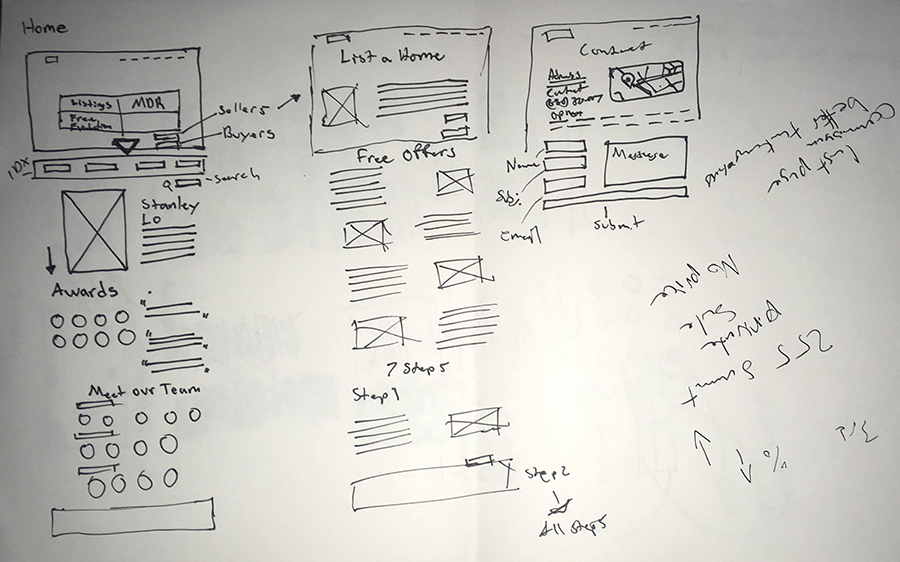 Home
Listings
MDR
Free
Evaluation
Sellers
Buyers
IDX
Search
Stanley
Lo
Awards
Meet our Team
List a Home
Free Offers
7 Steps
Step 1
Step 2
All Steps
Contact
Address
Name
Subj.
Email
Message
Submit
better
Common
Last
No price
Private
Sale
255